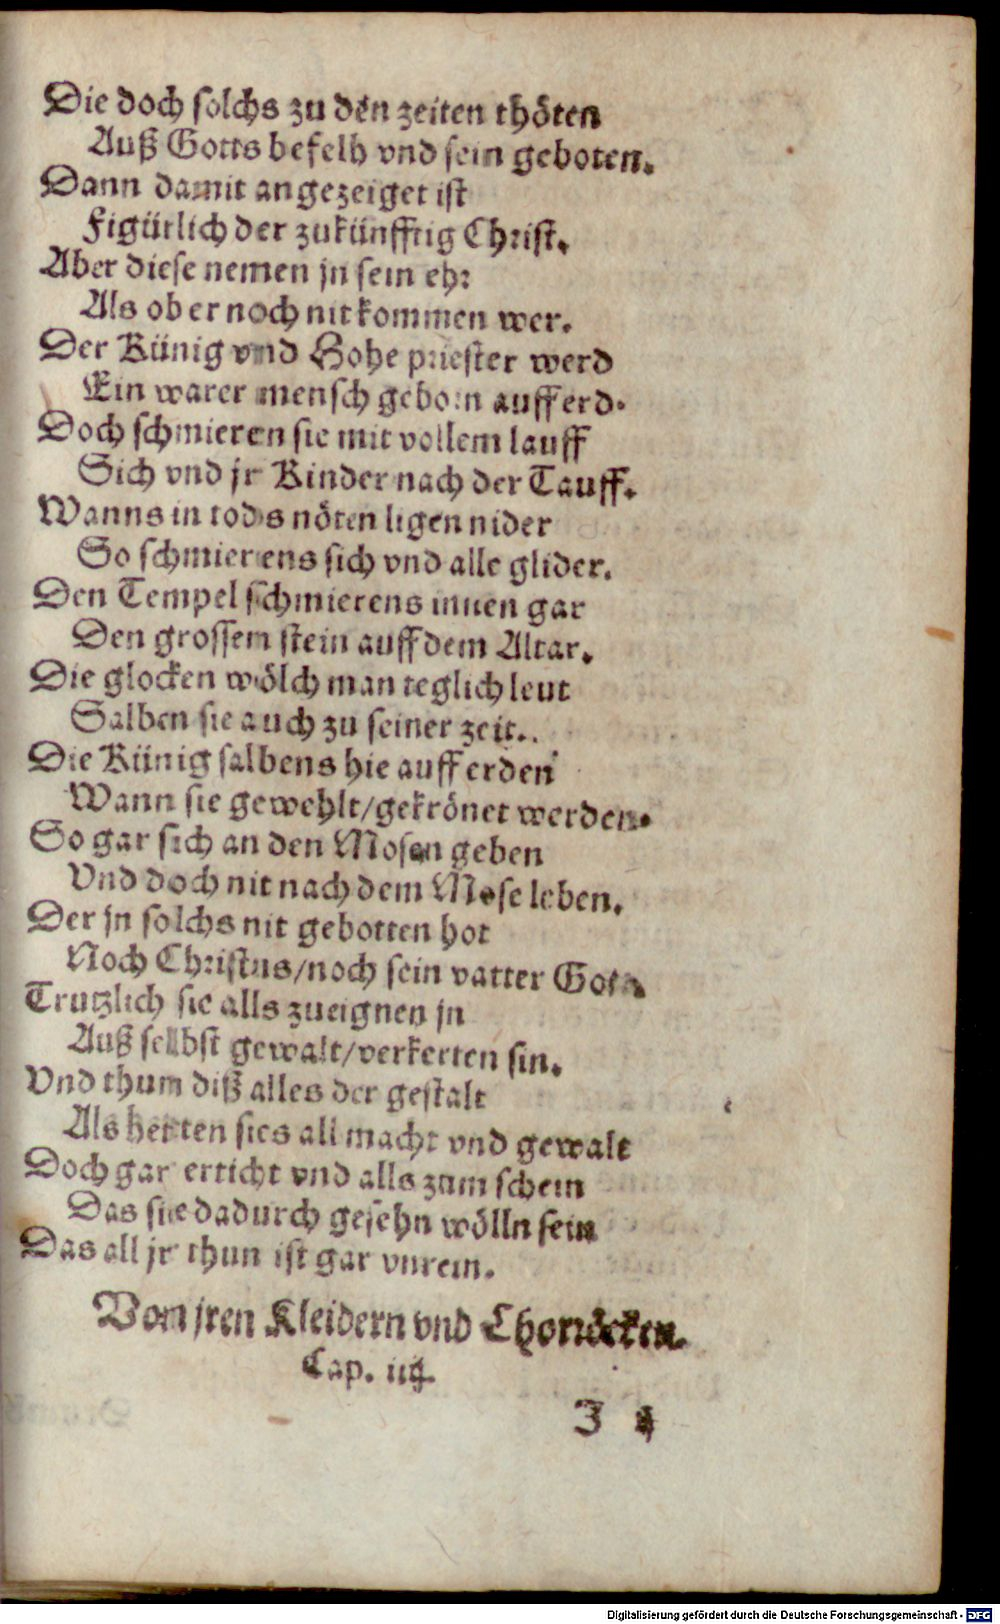 Die doch solchs zu den zeiten thöten
Auß Gotts befelh vnd sein geboten.
Dann damit angezeiget ist
Figürlich der zukünfftig Christ.
Aber diese nemen jn sein ehr
Als ob er noch nit kommen wer.
Der Künig vnd Hohe priester werd
Ein warer mensch geborn auff erd.
Doch schmieren sie mit vollem lauff
Sich vnd jr Kinder nach der Tauff.
Wanns in tods nöten ligen nider
So schmierens sich vnd alle glider.
Den Tempel schmierens innen gar
Den grossem stein auff dem Altar.
Die glocken wölch man teglich leut
Salben sie auch zu seiner zeit.
Die Künig salbens hie auff erden
Wann sie gewehlt/gekrönet werden.
So gar sich an den Mosen geben
Vnd doch nit nach dem Mose leben.
Der jn solchs nit gebotten hot
Noch Christus/noch sein vatter Gott.
Trutzlich sie alls zueignen jn
Auß selbst gewalt/verkerten sin.
Vnd thum diß alles der gestalt
Als hetten sies all macht vnd gewalt
Doch gar erticht vnd alls zum schein
Das sie dadurch gesehn wölln sein
Das all jr thun ist gar vnrein.
Von jren Kleidern vnd Chorröcken.
Cap. iiij.
J 4
Digitalisierung gefördert durch die Deutsche Forschungsgemeinschaft - DFG